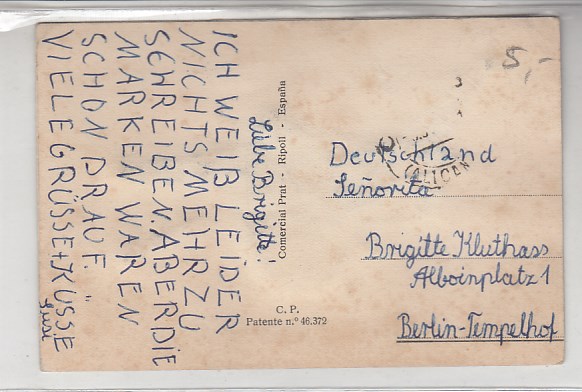 Liebe Brigitte!
ICH WEIß LEIDER
NICHTS MEHR ZU
SCHREIBEN. ABER DIE
MARKEN WAREN
SCHON DRAUF.
VIELE GRÜSSE + KÜSSE
Comercial Prat - Ripoll - España
C. P.
Patente n.º 46.372
5,-
Deutschland
Señorita
Brigitte Kluthass
Alboinplatz 1
Berlin-Tempelhof